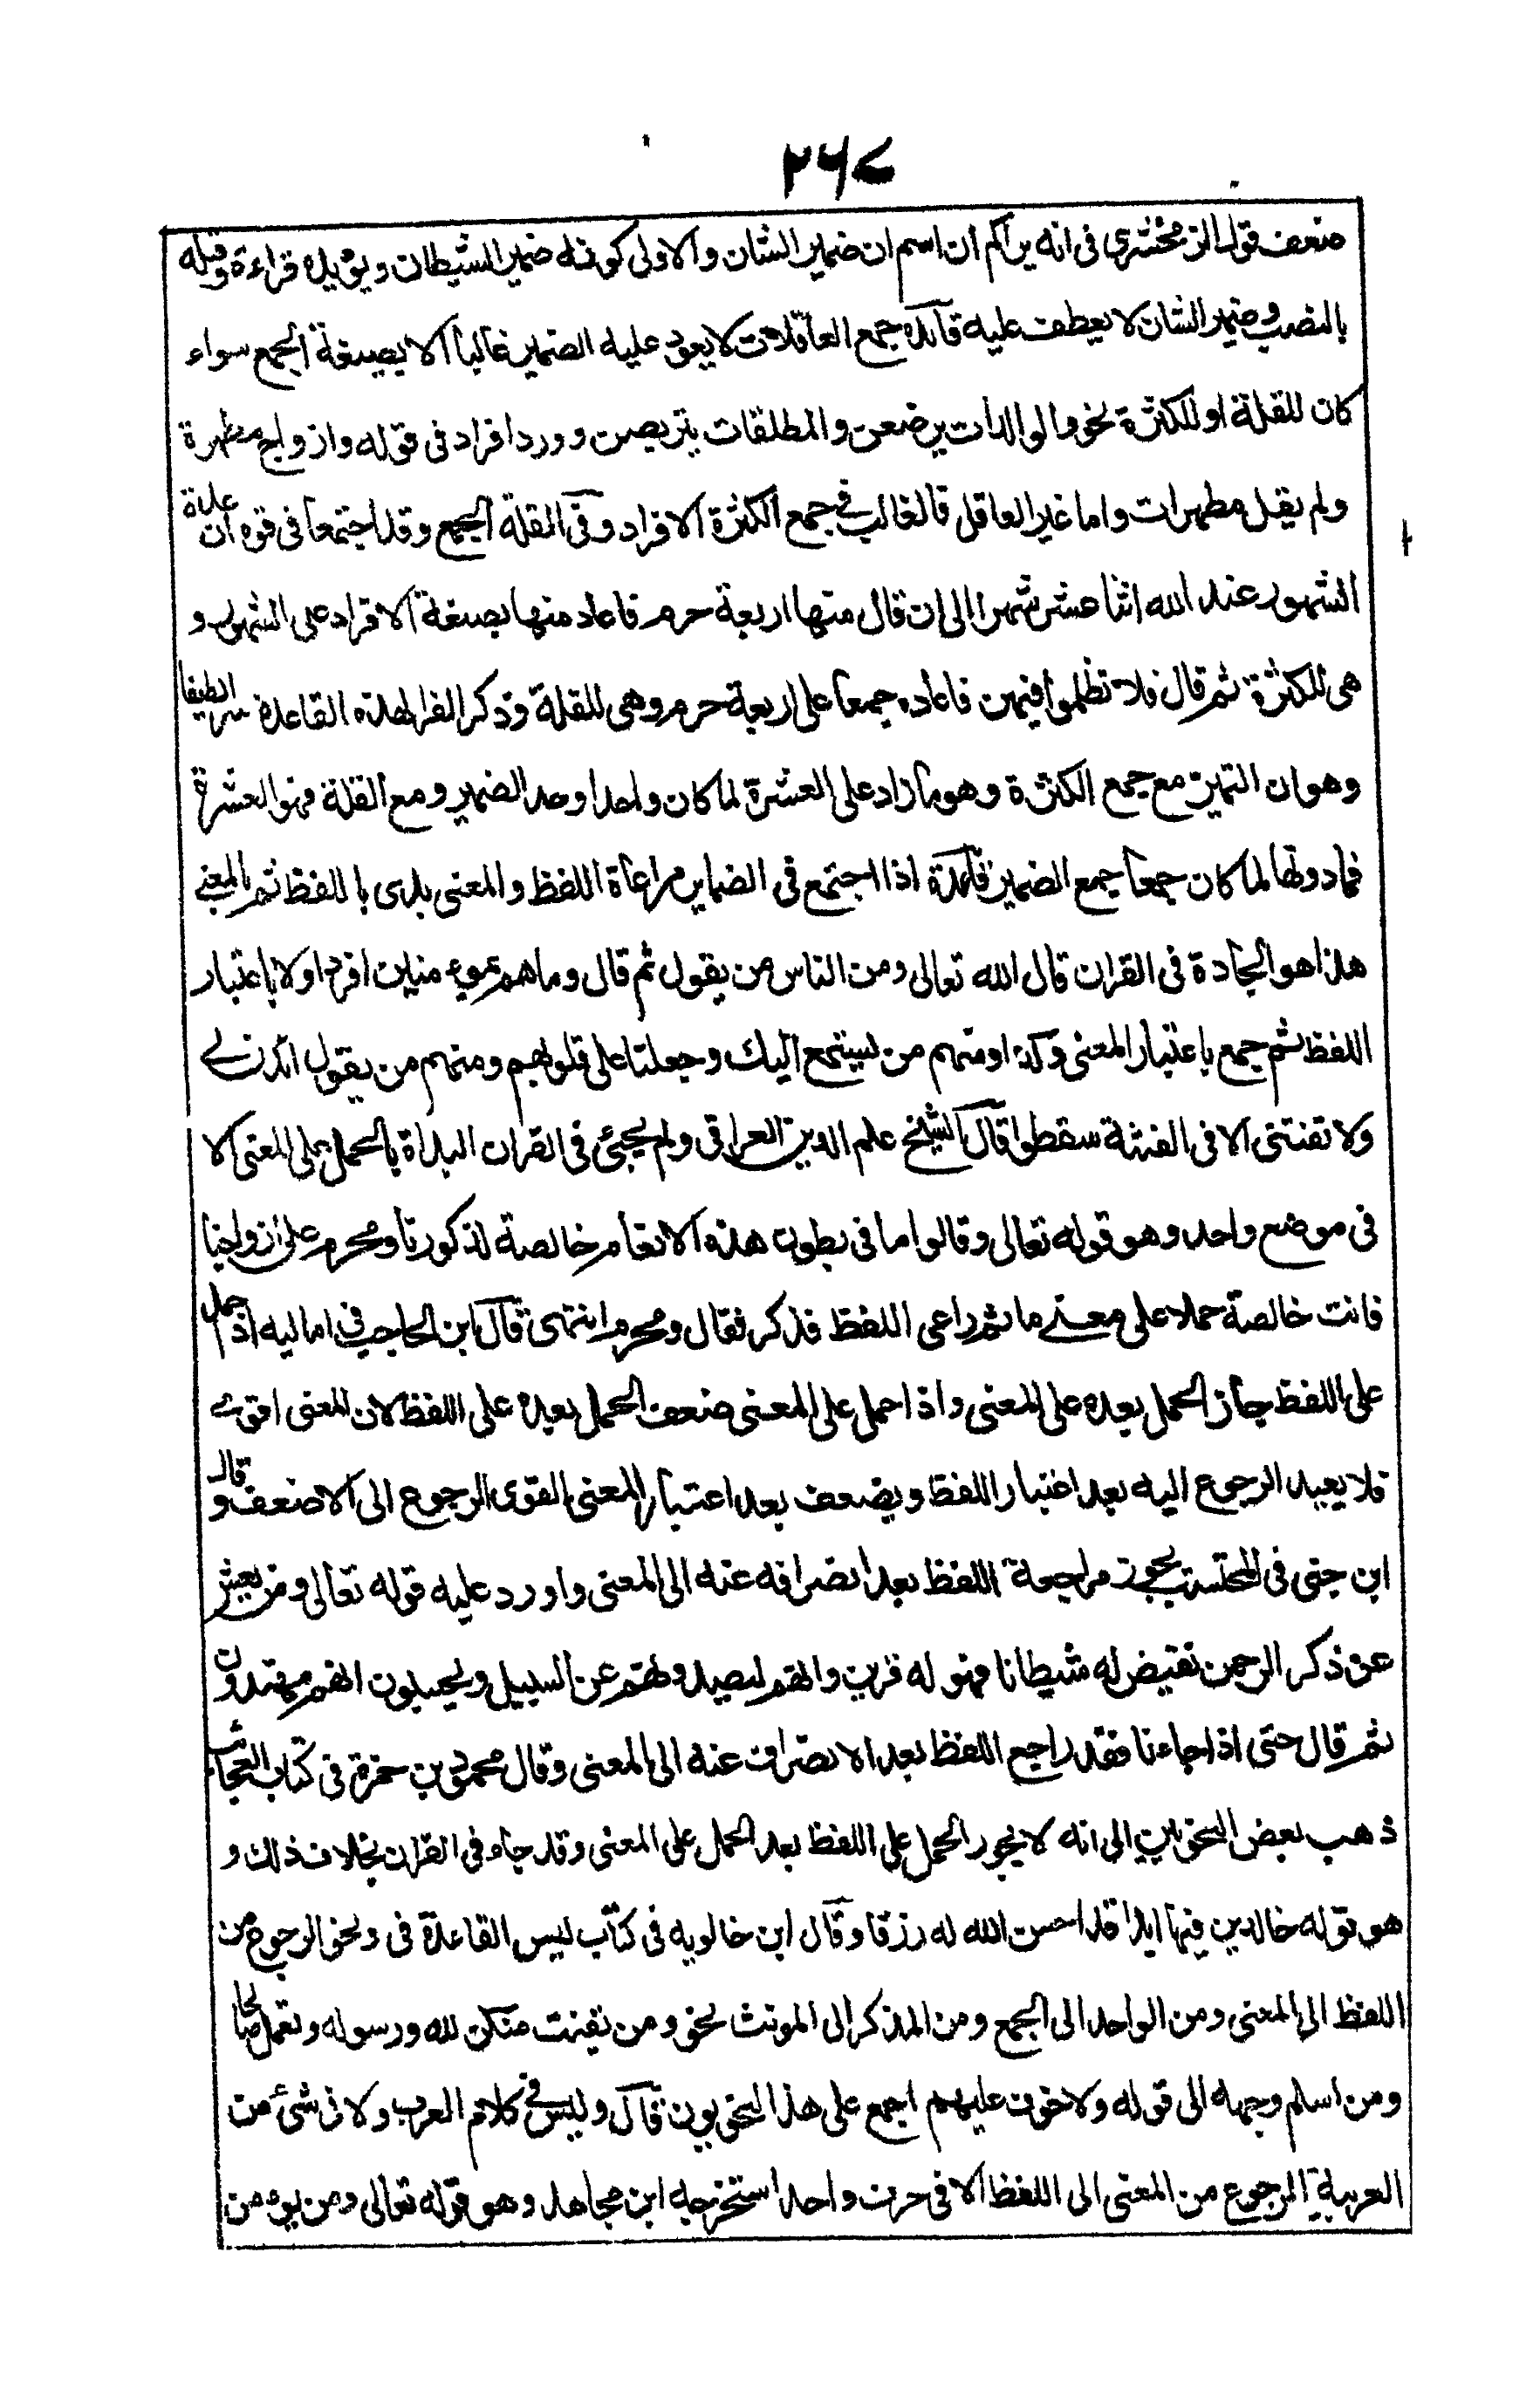 ٢٦٧
ضعف قول الزمخشرى فى انه يراكم ان اسم ان ضمير الشان والاولى كونه ضمير الشيطان ويؤيده قراءة وقبيله
بالنصب وضمير الشان لا يعطف عليه قاعدة جمع العاقلات لا يعود عليه الضمير غالبا الا بصيغة الجمع سواء
كان للقلة او للكثرة نحو والوالدات يرضعن والمطلقات يتربصن وورد افراد فى قوله وازواج مطهرة
ولم يقل مطهرات واما غير العاقل فالغالب فى جمع الكثرة الافراد وفى القلة الجمع وقد اجتمعا فى قوله ان عدة
الشهور عند الله اثنا عشر شهرا الى ان قال منها اربعة حرم فاعاد منها بصيغة الافراد على الشهور و
هى للكثرة ثم قال فلا تظلموا فيهن فاعاده جمعا على اربعة حرم وهى للقلة وذكر الفرا لهذه القاعدة سرا لطيفا
وهو ان التميز مع جمع الكثرة وهو ما زاد على العشرة لما كان واحدا وحد الضمير ومع القلة فهو العشرة
فما دونها لما كان جمعا جمع الضمير قاعدة اذا اجتمع فى الضماير مراعاة اللفظ والمعنى بدى باللفظ ثم بالمعنى
هذا هو الجادة فى القران قال الله تعالى ومن الناس من يقول ثم قال وما هم بمومنين افرد اولا باعتبار
اللفظ ثم جمع باعتبار المعنى وكذا ومنهم من يستمع اليك وجعلنا على قلوبهم ومنهم من يقول ائذن لى
ولا تفتنى الا فى الفتنة سقطوا قال الشيخ علم الدين العراقى ولم يجئ فى القران البداة بالحمل على المعنى الا
فى موضع واحد وهو قوله تعالى وقالوا ما فى بطون هذه الانعام خالصة لذكورنا ومحرم على ازواجنا
فانت خالصة حملا على معنى ما ثم راعى اللفظ فذكر فقال ومحرم انتهى قال ابن الحاجب فى اماليه اذا حمل
على اللفظ جاز الحمل بعده على المعنى واذا حمل على المعنى ضعف الحمل بعده على اللفظ لان المعنى اقوى
فلا يعبد الرجوع اليه بعد اعتبار اللفظ ويضعف بعد اعتبار المعنى القوى الرجوع الى الاضعف وقال
ابن جنى فى المحتسب يجوز مراجعة اللفظ بعد انصرافه عنه الى المعنى واورد عليه قوله تعالى ومن يعش
عن ذكر الرحمن نقيض له شيطانا فهو له قرين وانهم ليصدونهم عن السبيل ويحسبون انهم مهتدون
ثم قال حتى اذا جاءنا فقد راجع اللفظ بعد الانصراف عنه الى المعنى وقال محمود بن حمزة فى كتاب العجائب
ذهب بعض النحويين الى انه لا يجوز الحمل على اللفظ بعد الحمل على المعنى وقد جاء فى القران بخلاف ذلك و
هو قوله خالدين فيها ابدا قد احسن الله له رزقا وقال ابن خالويه فى كتاب ليس القاعدة فى ونحو الرجوع من
اللفظ الى المعنى ومن الواحد الى الجمع ومن المذكر الى المونث نحو ومن يقنت منكن لله ورسوله وتعمل صالحا
ومن اسلم وجهه الى قوله ولا خوف عليهم اجمع على هذا النحويون قال وليس فى كلام العرب ولا فى شئ من
العربية الرجوع من المعنى الى اللفظ الا فى حرف واحد استخرجه ابن مجاهد وهو قوله تعالى ومن يومن